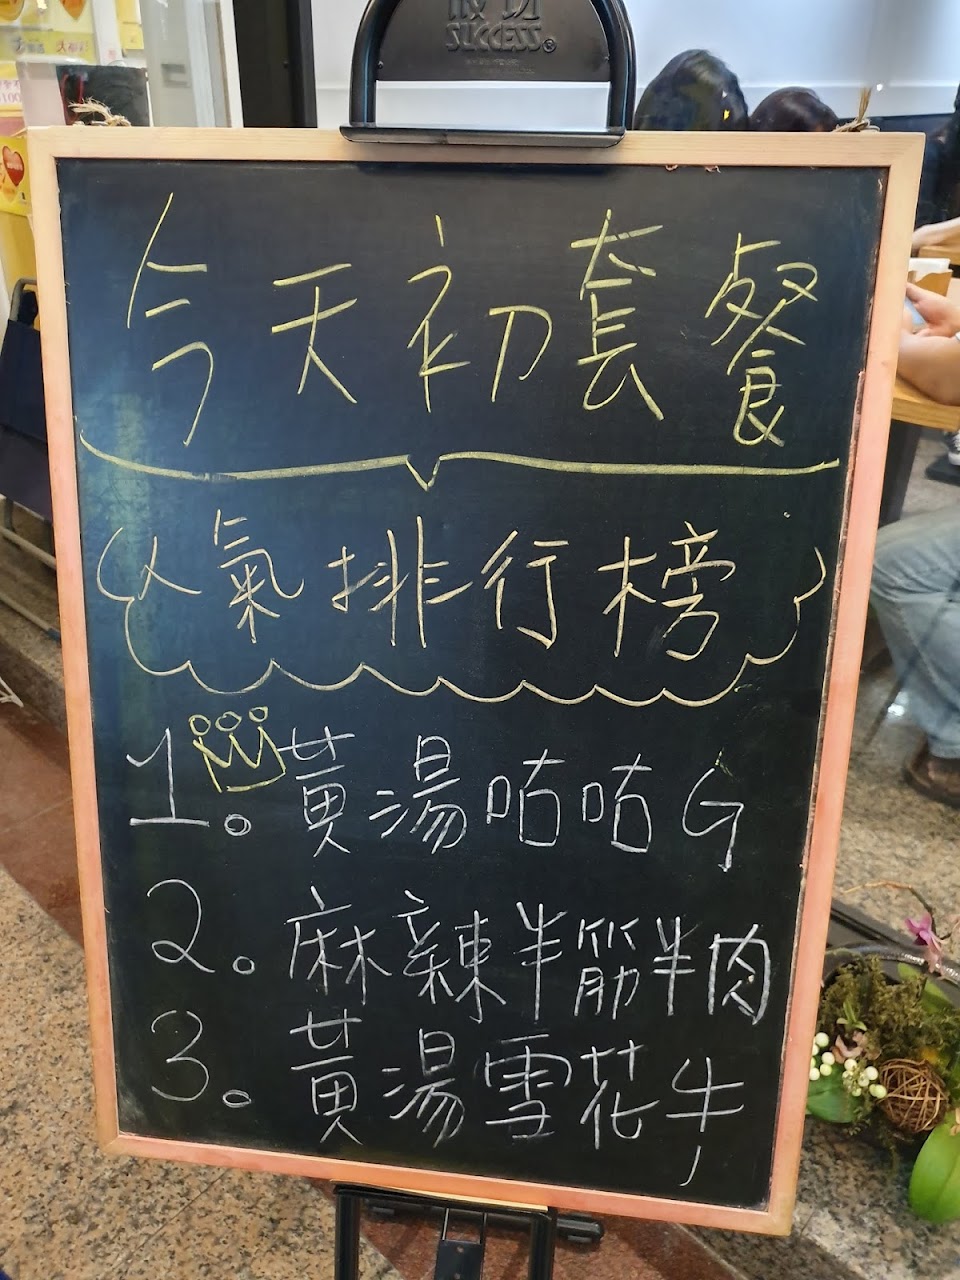 SUCCESS®
今天初套餐
人氣排行榜
1。黃湯咕咕G
2。麻辣半筋半肉
3。黃湯雪花牛